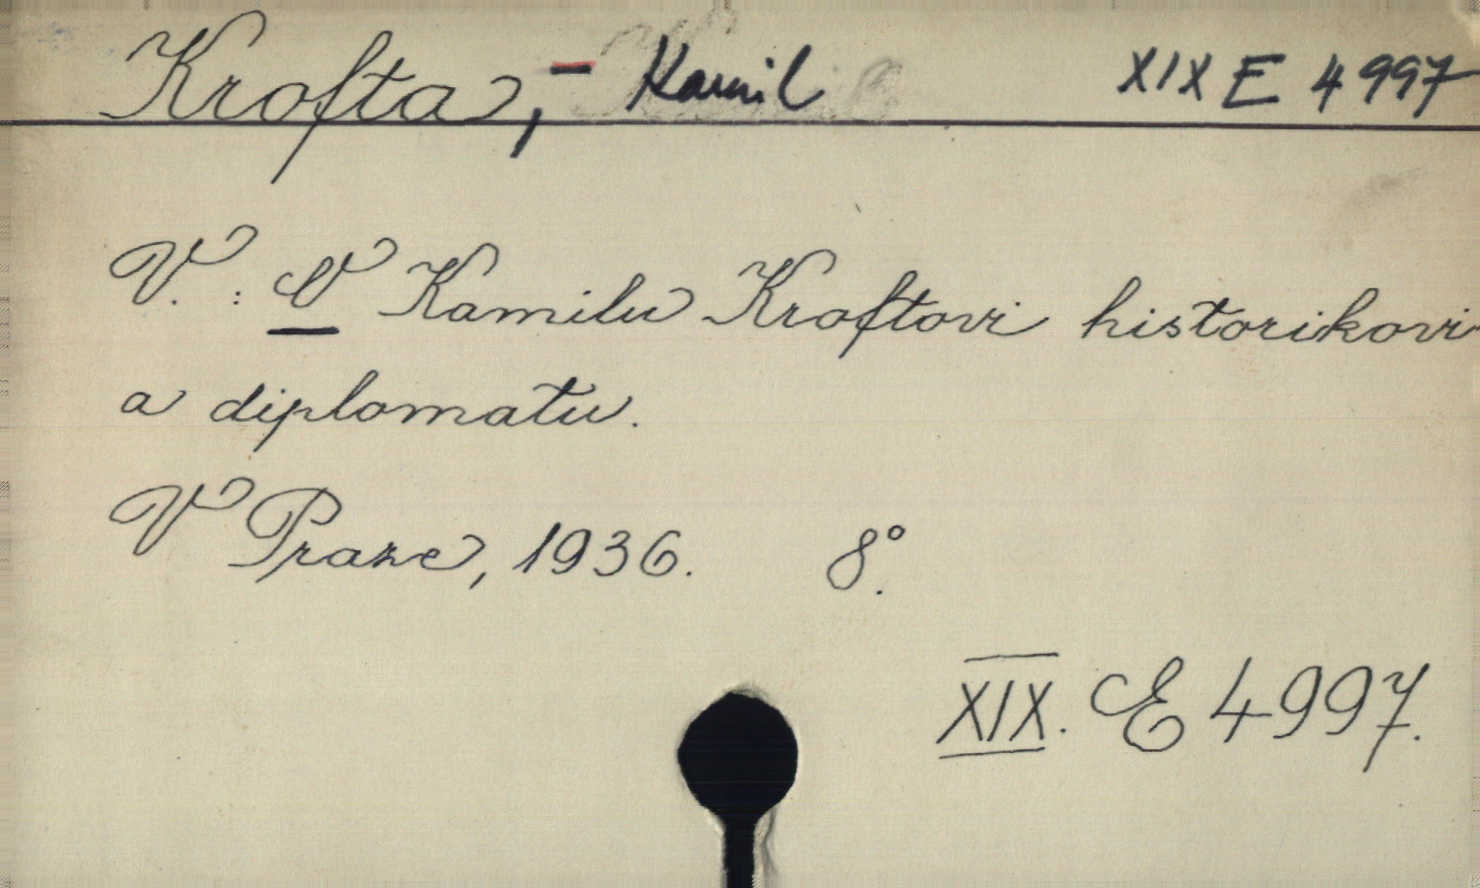 Krofta, - Kamil XIX E 4997
V. : V Kamilu Kroftovi historikovi
a diplomatu.
V Praze, 1936. 8°.
XIX. E 4997.